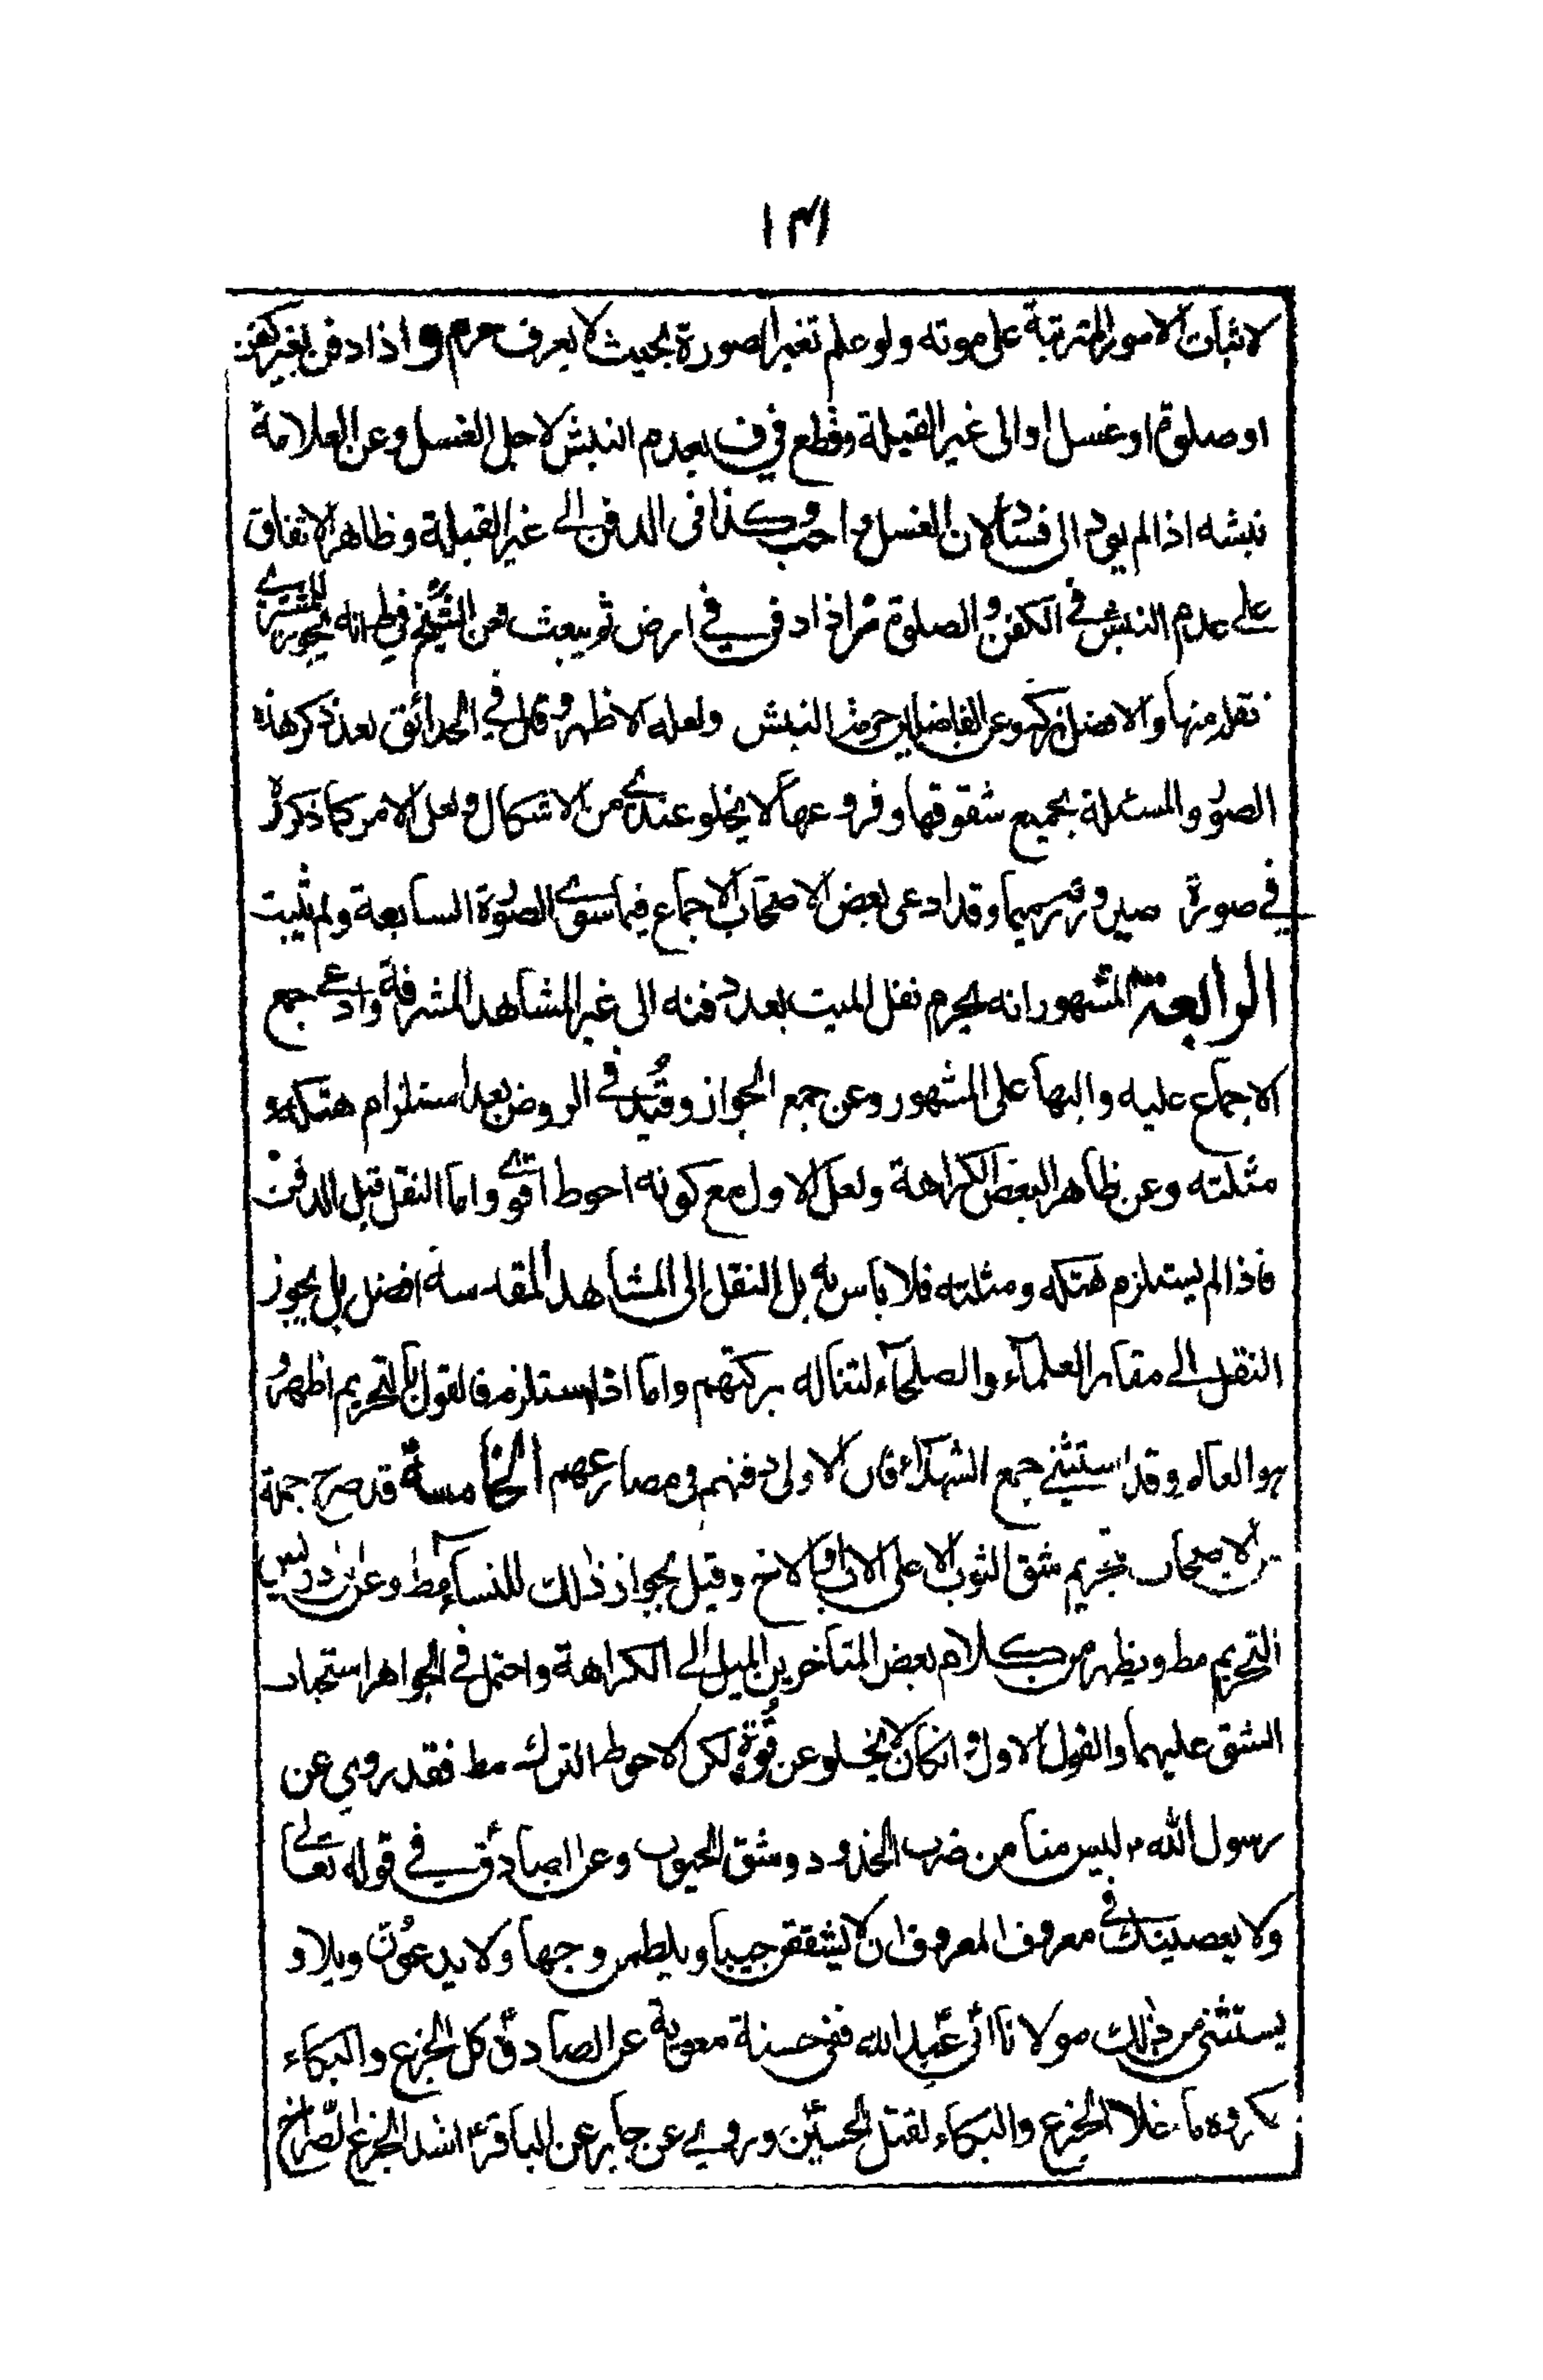 ١٣١
لاثبات الامور المترتبة على موته ولو علم تغير الصورة بحيث لا يعرف حرم و اذا دفن بغير كفن
او صلوة او غسل او الى غير القبلة وقطع في ف بعدم النبش لاجل الغسل وعن العلامة
نبشه اذا لم يود الى فساد لان الغسل واجب وكذا فى الدفن الى غير القبلة وظاهر الاتفاق
على عدم النبش في الكفن والصلوة اذا دفن في ارض ثم بيعت فعن الشيخ في ط انه يجوز للمشتري
نقله منها والافضل تركه وعن الفاضلين حرمة النبش ولعله الاظهر وقال في الحدائق بعد ذكر هذه
الصور والمسئلة بجميع شقوقها وفروعها لا يخلو عندي من الاشكال ولعل الامر كما ذكره
في صورة وقد ادعى بعض الاصحاب الاجماع فيما سوى الصورة السابعة ولم يثبت
الرابعة المشهور انه يحرم نقل الميت بعد دفنه الى غير المشاهد المشرفة وادعى جمع
الاجماع عليه واليها على المشهور وعن جمع الجواز وقيد في الروض بعد استلزام هتكه و
مثلته وعن ظاهر البعض الكراهة ولعل الاول مع كونه احوط اقوى واما النقل قبل الدفن
فاذا لم يستلزم هتكه ومثلته فلا باس به بل النقل الى المشاهد المقدسة افضل بل يجوز
النقل الى مقابر العلماء والصلحاء لتناله بركتهم واما اذا استلزم فالقول بالتحريم اظهر
هو العالم وقد استثنى جمع الشهداء فان الاولى دفنهم في مصارعهم الخامسة قد صرح جملة
من الاصحاب بتحريم شق الثوب الا على الاب والاخ وقيل بجواز ذلك للنساء مط وعن ابن ادريس
التحريم مط ويظهر من كلام بعض المتاخرين الميل الى الكراهة واحتمل في الجواهر استحباب
الشق عليهما والقول الاول وانكان لا يخلو عن قوة لكن الاحوط الترك مط فقد روي عن
رسول الله ص ليس منا من ضرب الخدود وشق الجيوب وعن الصادق في قوله تعالى
ولا يعصينك في معروف المعروف ان لا يشققن جيبا ويلطمن وجها ولا يدعون ويلا و
يستثنى من ذلك مولانا ابي عبد الله ففي حسنة معوية عن الصادق كل الجزع والبكاء
مكروه ما خلا الجزع والبكاء لقتل الحسين وروي عن جابر عن الباقر اشد الجزع الصراخ